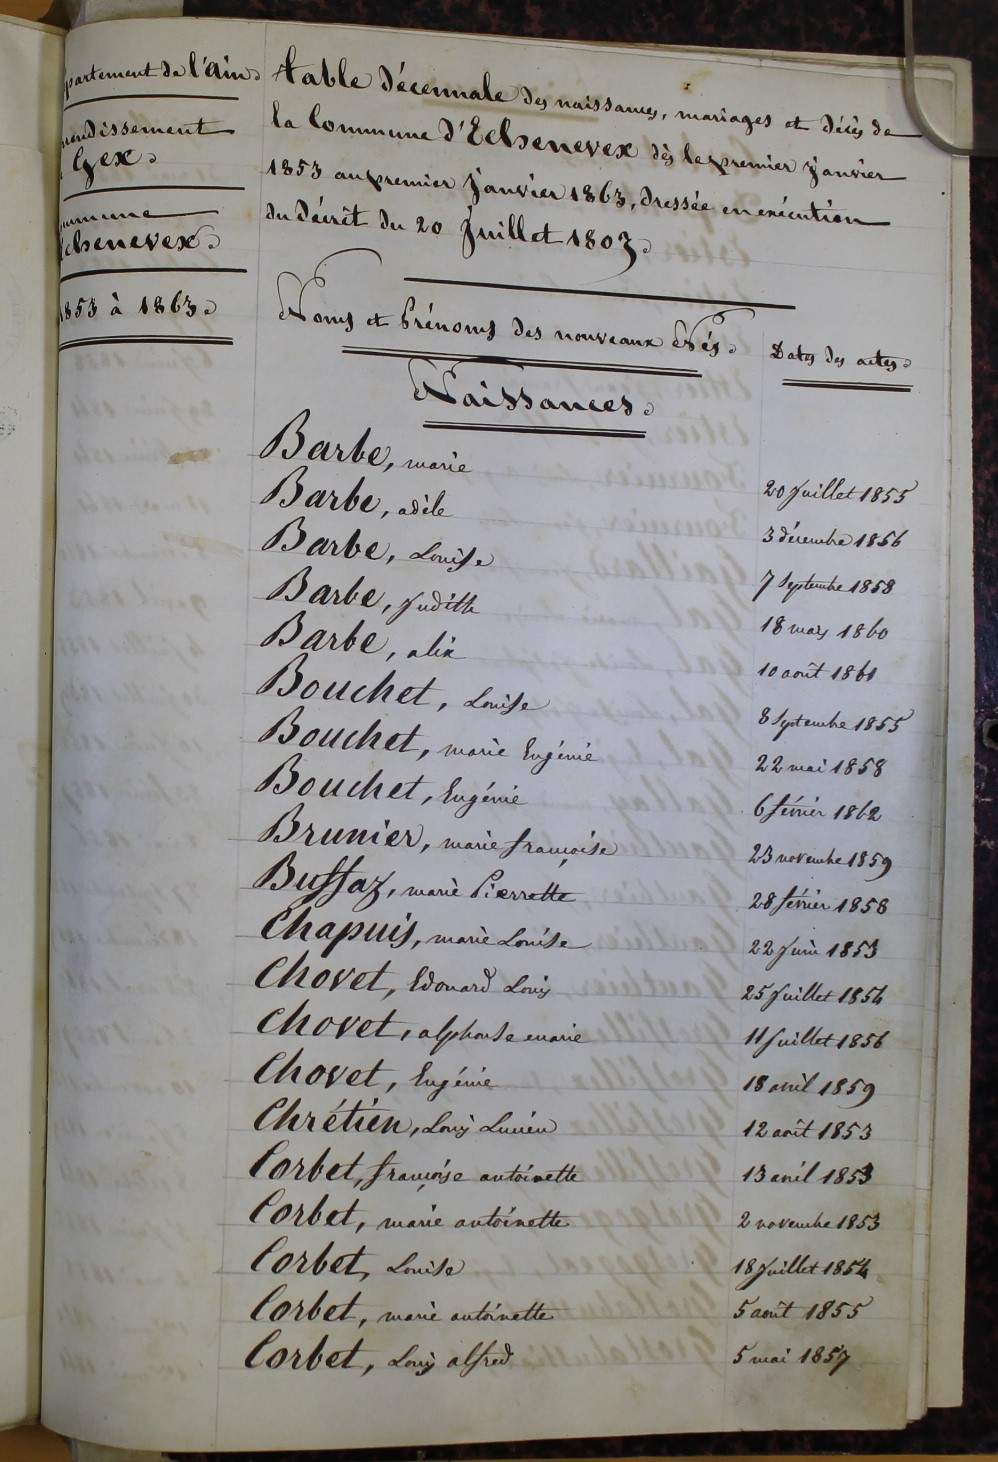 partement de l'Ain.
ondissement
Gex.
ommune
Echenevex.
1853 à 1863.
table décennale des naissances, mariages et décès de
la Commune d'Echenevex dès le premier janvier
1853 au premier janvier 1863, dressée en exécution
du décrèt du 20 Juillet 1803.
Noms et Prénoms des nouveaux Nés.
Dates des actes.
Naissances.
Barbe, marie 20 Juillet 1855
Barbe, adèle 3 décembre 1856
Barbe, Louise 7 Septembre 1858
Barbe, Judith 18 mars 1860
Barbe, alix 10 août 1861
Bouchet, Louise 8 Septembre 1855
Bouchet, marie Eugénie 22 mai 1858
Bouchet, Eugénie 6 février 1862
Brunier, marie françoise 23 novembre 1859
Buffaz, marie Pierrette 28 février 1858
Chapuis, marie Louise 22 Juin 1853
Chovet, Edouard Louis 25 Juillet 1854
Chovet, alphonse marie 11 Juillet 1856
Chovet, Eugénie 18 avril 1859
Chrétien, Louis Lucien 12 août 1853
Corbet, françoise antoinette 13 avril 1853
Corbet, marie antoinette 2 novembre 1853
Corbet, Louise 18 Juillet 1854
Corbet, marie antoinette 5 août 1855
Corbet, Louis alfred 5 mai 1857